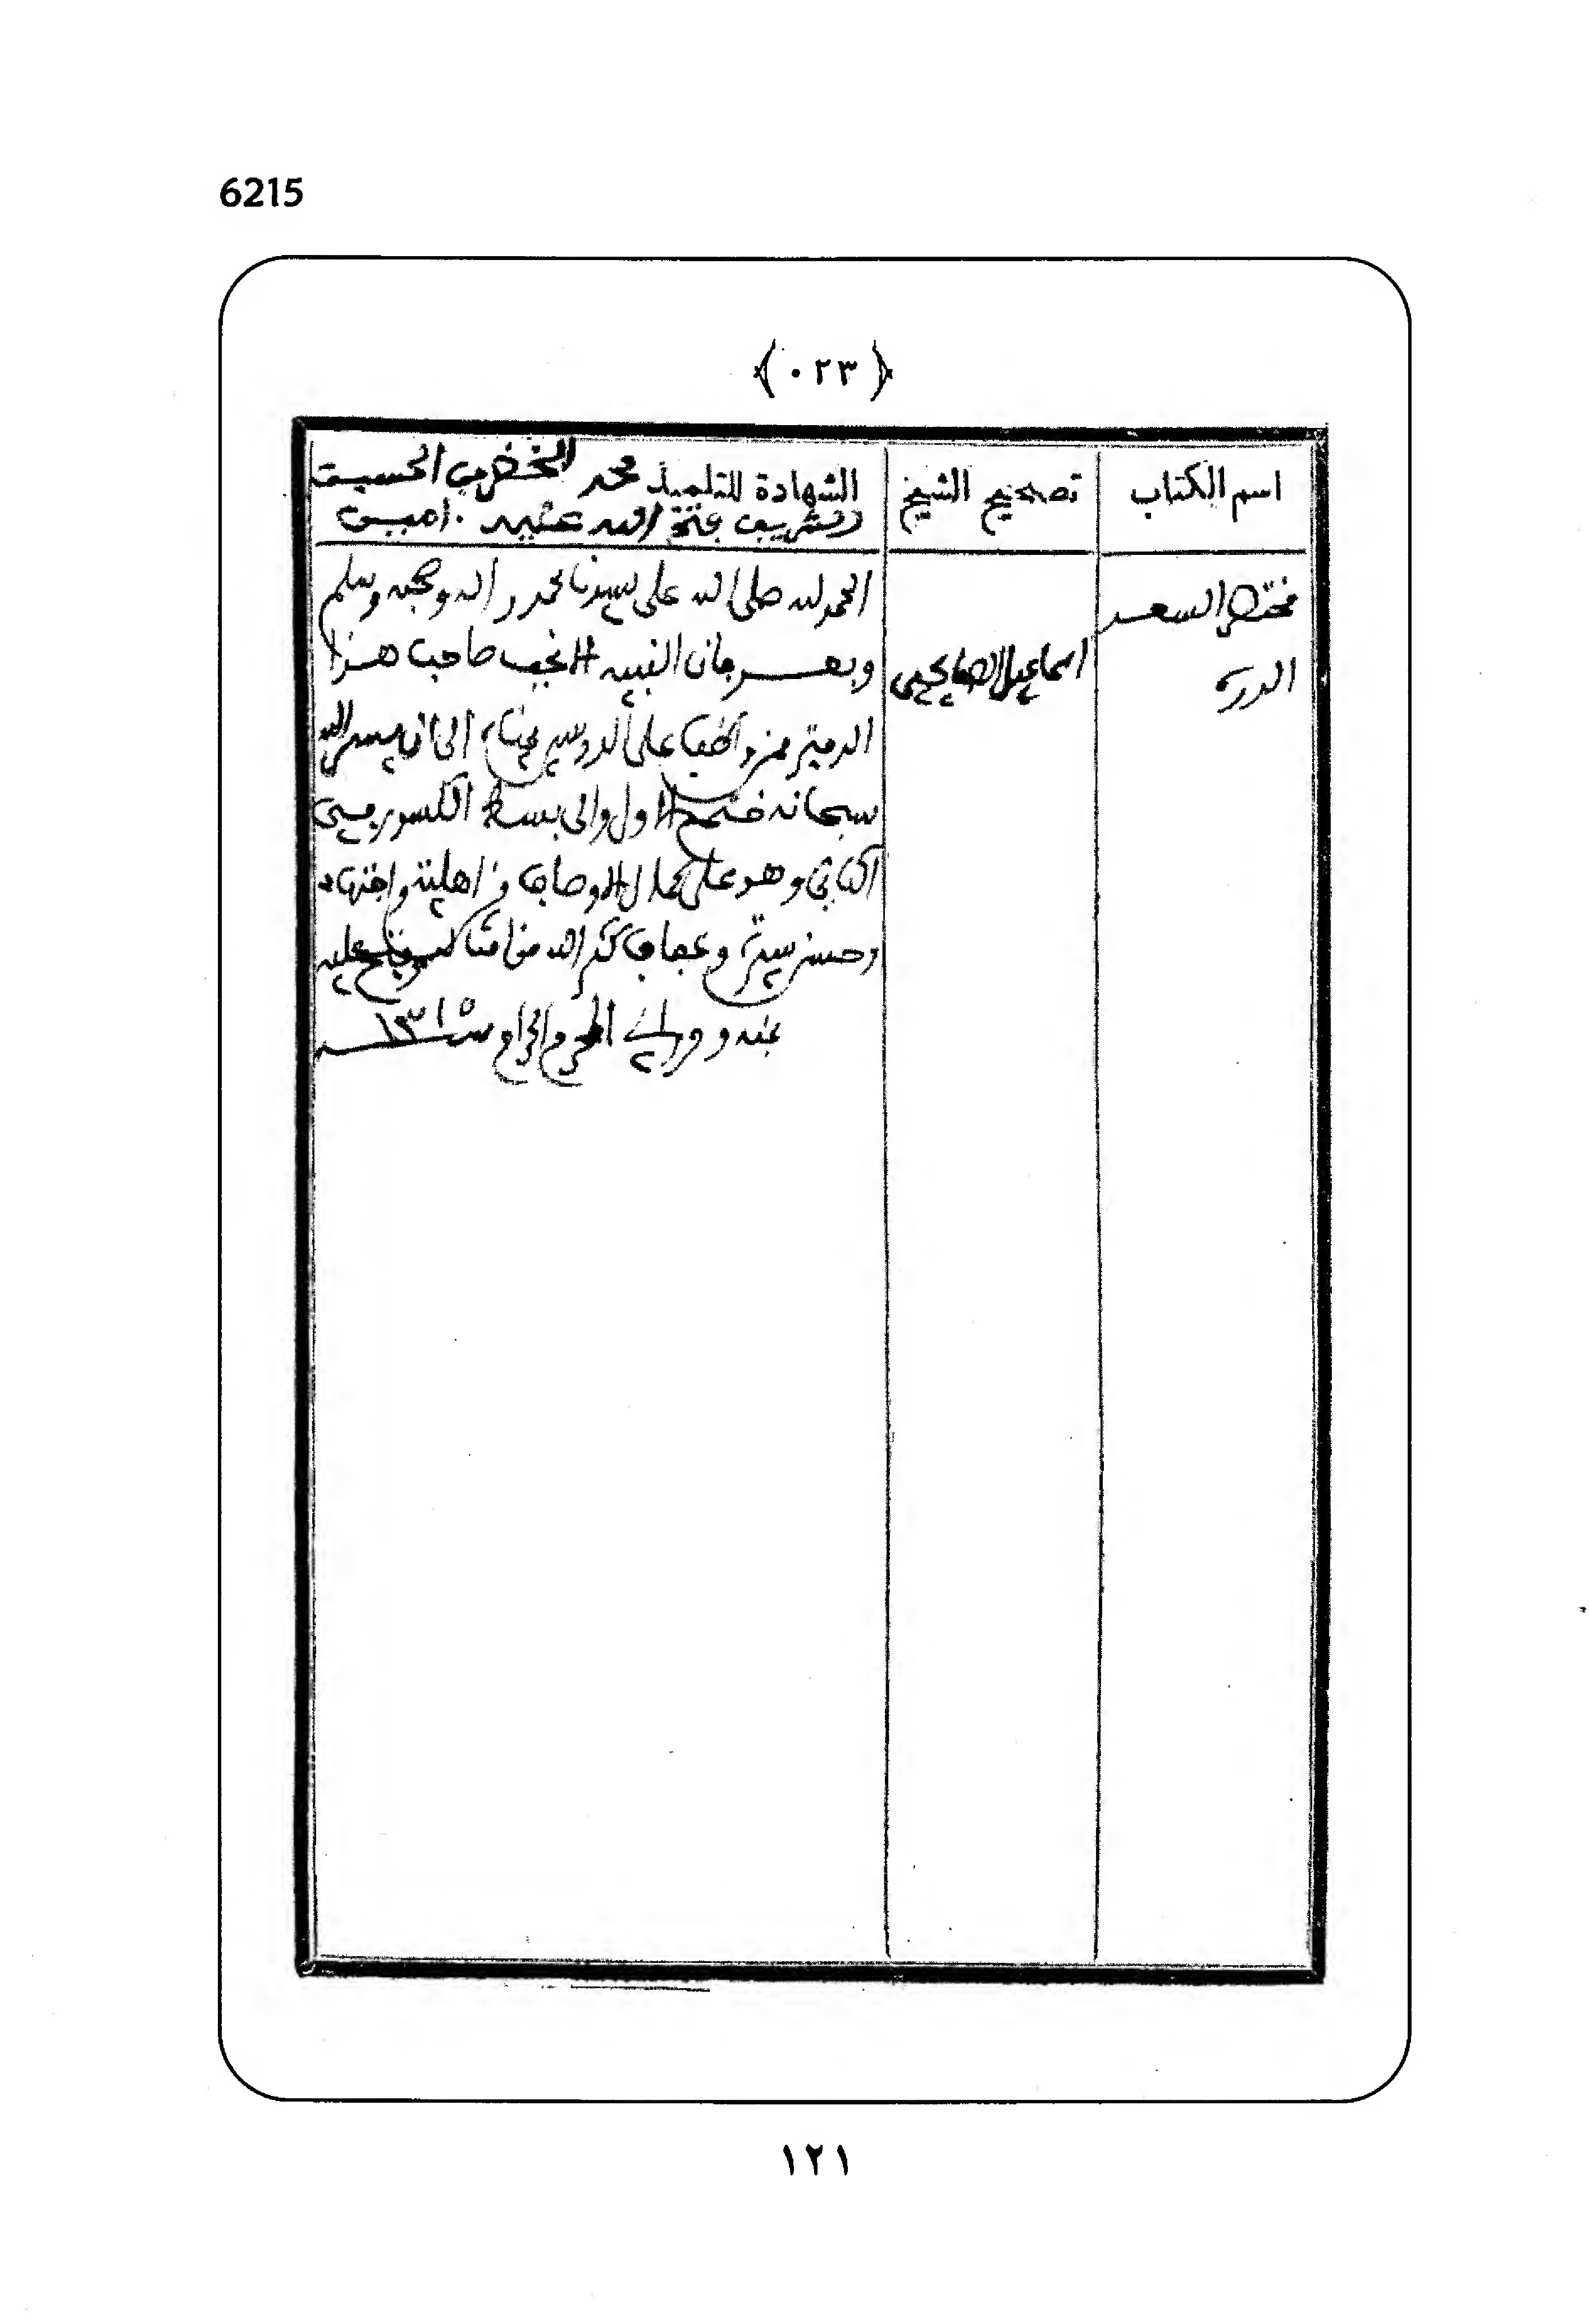 6215
﴿٠٢٣﴾
اسم الكتاب
تصحيح الشيخ
الشهادة للتلميذ محمد الخضر بن الحسين
الشريف فتح الله عليه امين
مختصر السعد
الدرة
اسماعيل الصفايحي
الحمد لله صلى الله على سيدنا محمد واله وصحبه وسلم
وبعد فان النبيه الانجب صاحب هذا
الدفتر ممن واظب على الدروس الى ان يسر الله
سبحانه ختم الاول والى بسط الكسور من
الثاني وهو على كمال الاوصاف في اهلية واجتهاد
وحسن سيرة وعفاف كثر الله من امثاله وفتح عليه
بمنه وفي المحرم الحرام سنة ١٣١٥
١٢١